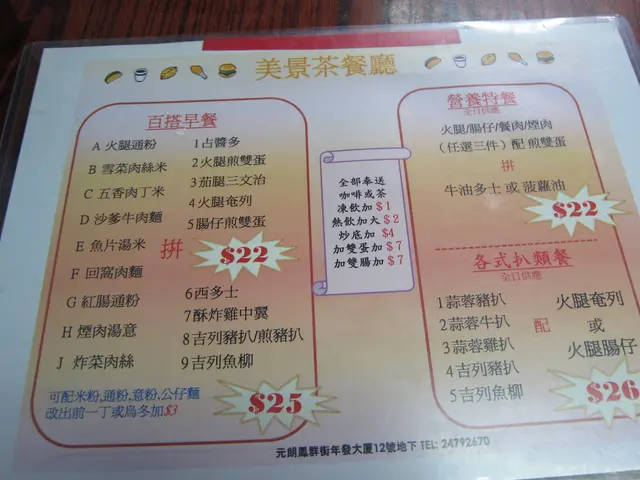 美景茶餐廳
百搭早餐
A 火腿通粉
B 雪菜肉絲米
C 五香肉丁米
D 沙爹牛肉麵
E 魚片湯米
F 回窩肉麵
G 紅腸通粉
H 煙肉湯意
J 炸菜肉絲
拼
1占醬多
2火腿煎雙蛋
3茄腿三文治
4火腿奄列
5腸仔煎雙蛋
$22
6西多士
7酥炸雞中翼
8吉列豬扒/煎豬扒
9吉列魚柳
$25
可配米粉,通粉,意粉,公仔麵
改出前一丁或烏冬加$3
全部奉送
咖啡或茶
凍飲加$1
熱飲加大$2
炒底加 $4
加雙蛋加$7
加雙腸加$7
營養特餐
全日供應
火腿/腸仔/餐肉/煙肉
(任選三件) 配 煎雙蛋
拼
牛油多士 或 菠蘿油
$22
各式扒類餐
全日供應
1蒜蓉豬扒
2蒜蓉牛扒
3蒜蓉雞扒
4吉列豬扒
5吉列魚柳
配
火腿奄列
或
火腿腸仔
$26
元朗鳳群街年發大厦12號地下 TEL: 24792670